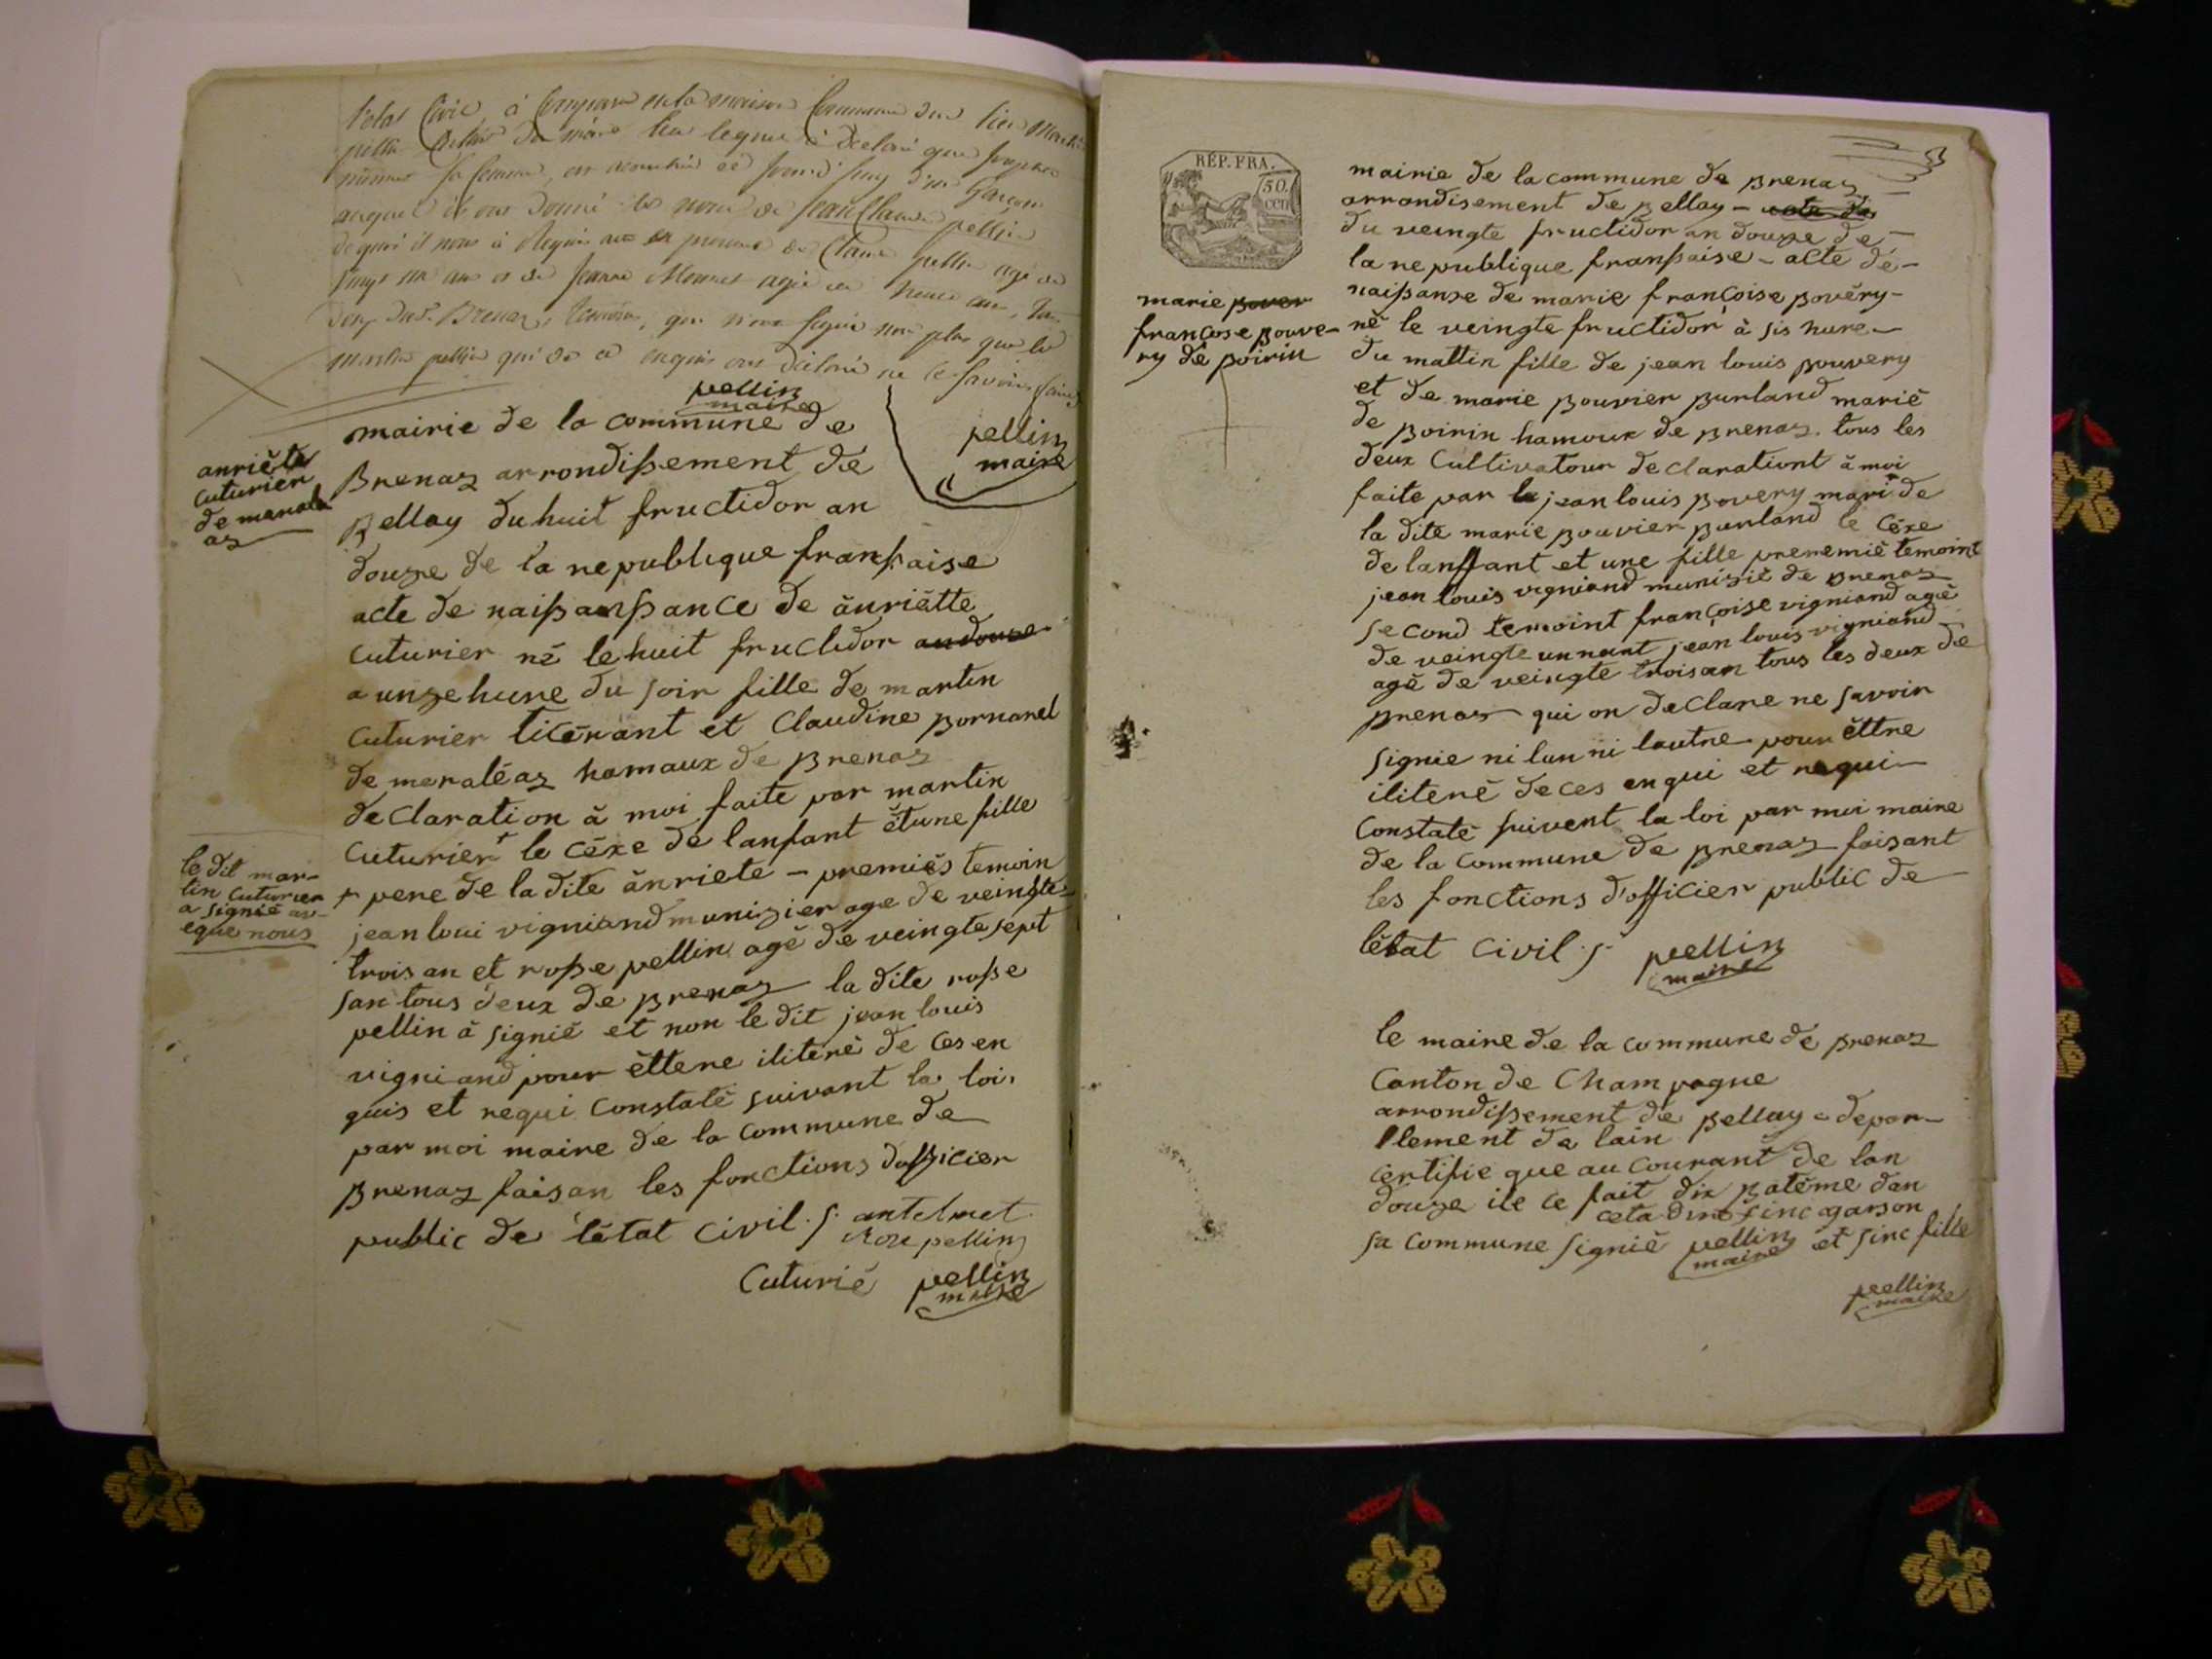 létat Civil, à Comparu en la maison Commune dud. lieu Martin
pellin du dit lieu lequel à declaré que
sa femme, est accouchée ce jourd'huy d'un Garçon
auquel il ont donné le nom de Jean Claude pellin
de quoi il nous à Requis acte en presence de Claude pellin agé de
vingt un ans et de Jeanne Monnet agée de ans, tous
deux dud. Brenaz, temoins, qui n'ont signé non plus que led.
martin pellin qui de ce enquis ont déclaré ne le savoir faire
pellin
maire
pellin
maire
anriète
Cuturier
de marale
az
mairie de la commune de
Brenaz arrondissement de
Bellay du huit fructidor an
douze de la republique fransaise
acte de naissanssance de ânriétte
Cuturier né le huit fructidor an douze
a unze hure du soir fille de martin
Cuturier ticérant et Claudine Bornarel
de meraléaz hamaux de Brenaz
declaration à moi faite par martin
Cuturier + le céxe de lanfant étune fille
+ pere de la dite ânriete - premiés temoin
jean loui vigniand munizier age de veingte
trois an et rosse pellin agé de veingte sept
san tous deux de Brenaz la dite rosse
pellin à signié et non le dit jean louis
vigniand pour éttere iliteré de ces en
quis et requi Constaté suivant la loi
par moi maire de la Commune de
Brenaz faisan les fonctions dofficier
public de létat Civil ./.
le dit mar-
tin Cuturier
a signié av-
eque nous
antelmet
Rose pellin
Cuturié
pellin
maire
RÉP. FRA.
50.
cen
marie pover
françose pouve-
ry de poirin
mairie de la commune de Brenaz
arrondisement de Bellay -
du veingte fructidor an douze de -
la republique fransaise - acte de -
naissanse de marie françoise povéry -
né le veingte fructidor à sis hure -
du mattin fille de jean louis pouvery
et de marie Bouvier Burland marié
de poirin hamoux de Brenaz. tous les
deux Cultivatour declarationt à moi
faite par le jean louis povery mari de
la dite marie Bouvier Burland le Céxe
de lanffant et une fille preremié temoint
jean louis vigniand munizié de Brenaz
second temoint françoise vigniand agé
de veingte unnant jean louis vigniand
agé de veingte trois an tous les deux de
Brenaz qui on declare ne savoir
signie ni lun ni lautre pour éttre
iliteré de ces enqui et requi -
Constaté suivent la loi par moi maire
de la Commune de Brenaz faisant
les fonctions d'officier public de
létat Civil ./.
pellin
maire
le maire de la Commune de Brenaz
Canton de Champagne
arrondissement de Bellay - depar-
tlement de lain
certifie que au Courant de lan
douze ile ce fait dix Batéme dan
ceta dire sinc garson
sa commune signié pellin et sinc fille
maire
pellin
maire